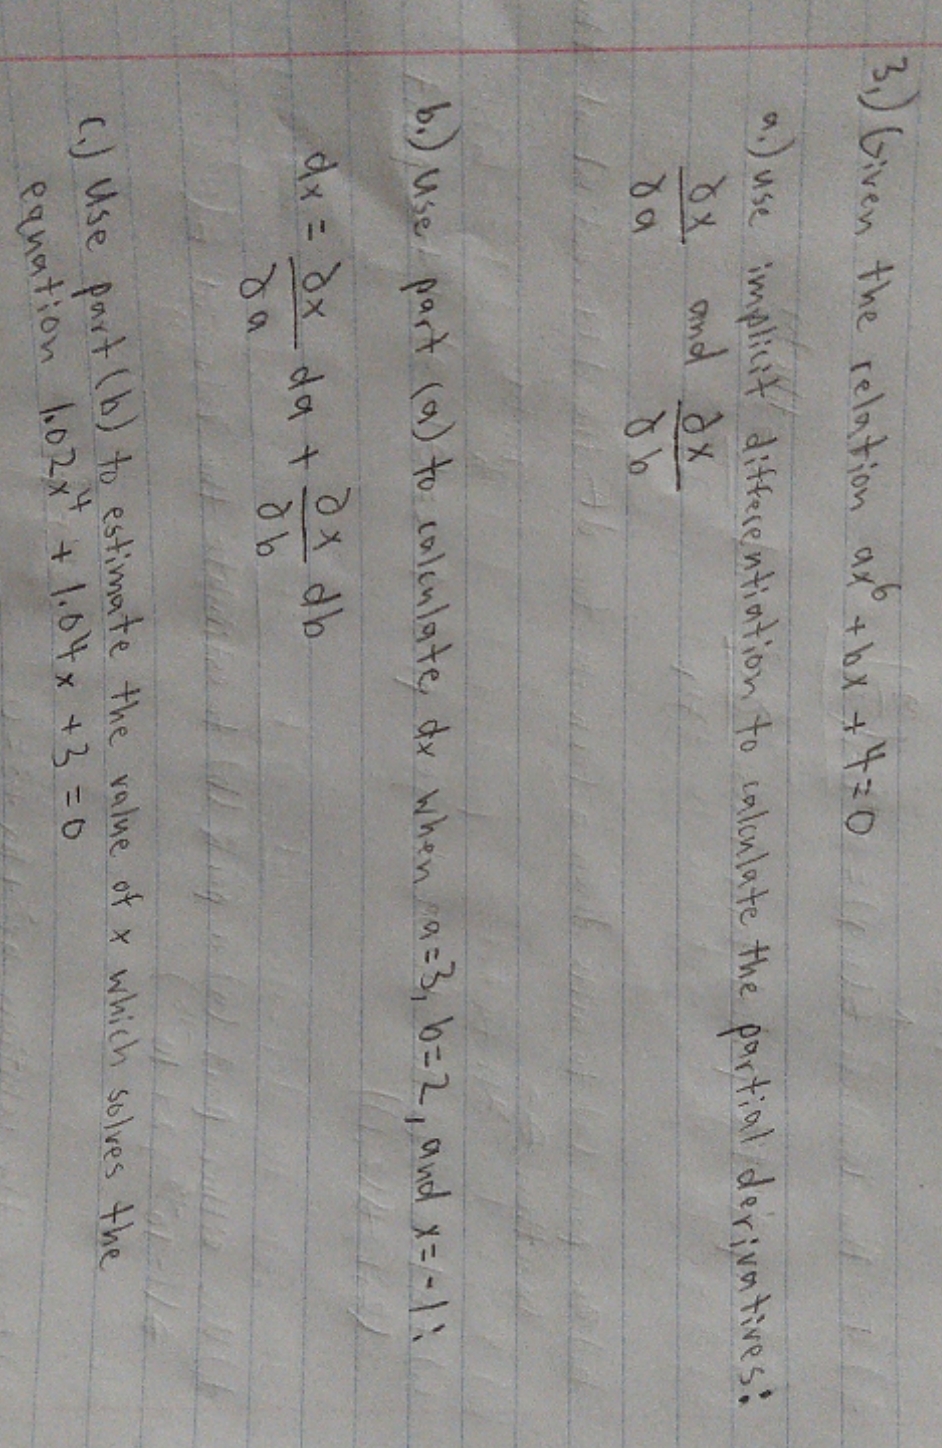 3.) Given the relation ax⁶ + bx + 4 = 0
a.) use implicit differentiation to calculate the partial derivatives:
∂x/∂a and ∂x/∂b
b.) Use part (a) to calculate dx when a=3, b=2, and x=-1:
dx = ∂x/∂a da + ∂x/∂b db
c.) Use part (b) to estimate the value of x which solves the
equation 1.02x⁴ + 1.04x + 3 = 0